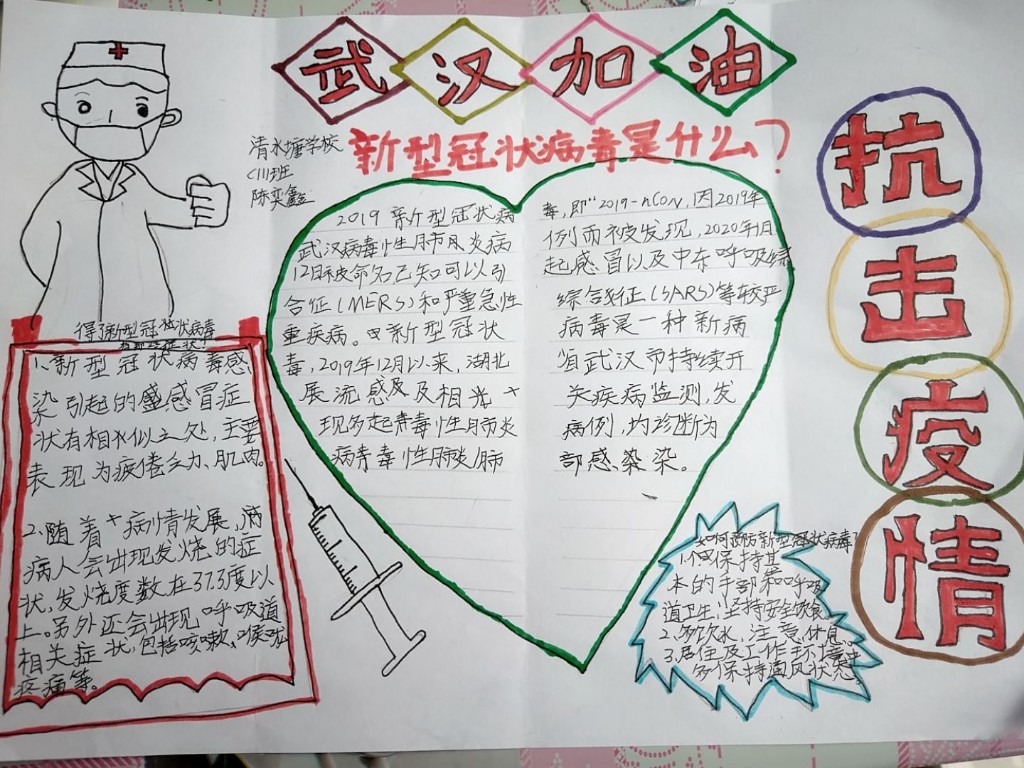 武汉加油
新型冠状病毒是什么？
清水塘学校
C111班
陈奕鑫
抗击疫情
2019新型冠状病
武汉病毒性肺炎病
12日被命名已知可以引
合征(MERS)和严重急性
重疾病。新型冠状
毒,2019年12月以来,湖北
展流感及及相关
现多起毒性肺炎
病毒性肺炎肺
毒,即“2019-nCoV,因2019年
例而被发现,2020年1月
起感冒以及中东呼吸综
综合征(SARS)等较严
病毒是一种新病
省武汉市持续开
关疾病监测,发
病例,均诊断为
部感染染。
得了新型冠状病毒
1、新型冠状病毒感
染引起的感冒症
状有相似之处,主要
表现为疲倦乏力、肌肉。
2.随着病情发展,
病人会出现发烧的症
状,发烧度数在37.3度以
上。另外还会出现呼吸道
相关症状,包括咳嗽、喉咙
疼痛等。
如何预防新型冠状病毒!
1.保持基
本的手部和呼吸
道卫生,坚持安全饮食
2.多饮水,注意休息、
3.居住及工作环境
多保持通风状态